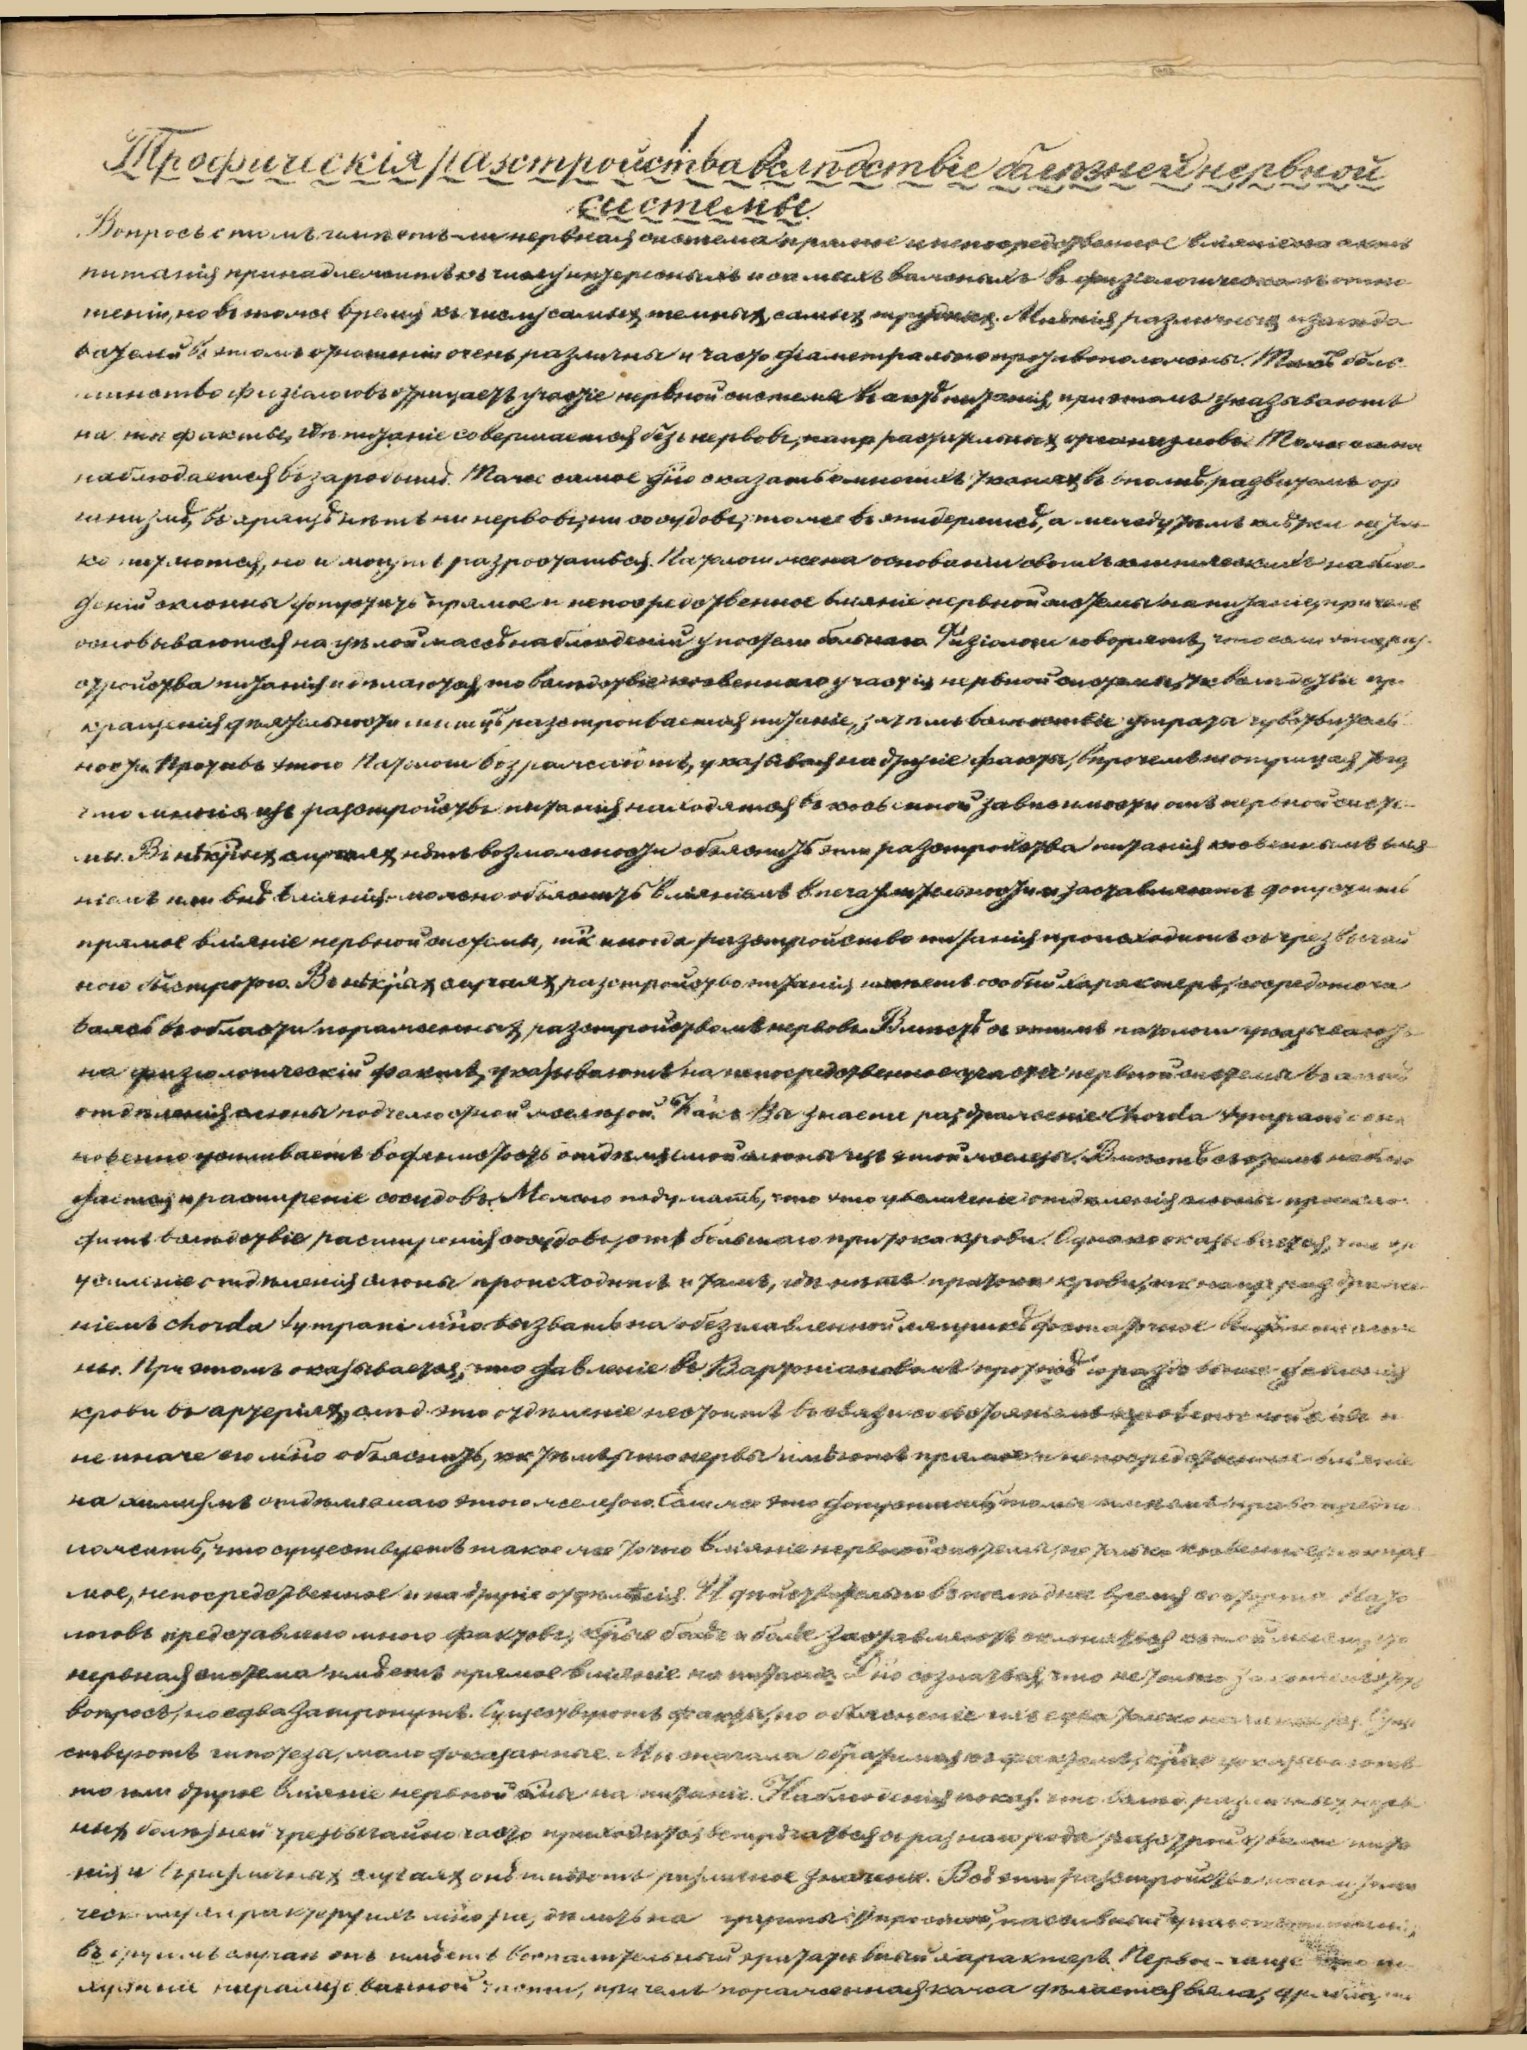 1
Трофическія разстройства вслѣдствіе болѣзней нервной
системы.
Вопросъ о томъ имѣетъ-ли нервная система прямое и непосредственное вліяніе на актъ
питанія принадлежитъ къ числу интересныхъ и самыхъ важныхъ въ физіологическомъ отно
шеніи, но въ тоже время къ числу самыхъ темныхъ, самыхъ трудныхъ. Мнѣнія различныхъ изслѣдо
вателей въ этомъ отношеніи очень различны и часто діаметрально противоположны. Такъ боль
шинство физіологовъ отрицаетъ участіе нервной системы въ актѣ питанія, при этомъ указываютъ
на тѣ факты, гдѣ питаніе совершается безъ нервовъ, напр растительныхъ организмовъ. Тоже самое
наблюдается въ зародышѣ. Тоже самое д̃но сказать о многихъ тканяхъ въ вполнѣ развитомъ ор
ганизмѣ, въ хрящѣ нѣтъ ни нервовъ, ни сосудовъ, тоже въ эпидермисѣ, а между тѣмъ клѣтки не толь
ко питаются, но и могутъ разростаться. Патологи же на основаніи своихъ клиническихъ наблю
деній склонны допустить прямое и непосредственное вліяніе нервной системы на питаніе, причемъ
основываются на цѣлой массѣ наблюденій у постели больнаго. Физіологи говорятъ, что если эти раз
стройства питанія и дѣлаются, то вслѣдствіе косвеннаго участія нервной системы, т.к. вслѣдствіе пре
кращенія дѣятельности мышцъ разстроивается питаніе, затѣмъ вслѣдствіе утраты чувствитель
ности. Противъ этого Патологи возражаютъ, указывая на другіе факты, впрочемъ не отрицая, того
что многія изъ разстройствъ питанія находятся въ косвенной зависимости отъ нервной систе
мы. Въ нѣк̃рыхъ случаяхъ нѣтъ возможности объяснить эти разстройства питанія косвеннымъ влія
ніемъ или внѣ вліянія можно объяснить вліяніемъ впечатлительности и заставляютъ допустить
прямое вліяніе нервной системы, т̃к иногда разстройство питанія происходитъ съ чрезвычай
ною быстротою. Въ нѣк̃рыхъ случаяхъ разстройство питанія имѣетъ особый характеръ, сосредоточи
ваясь въ области пораженныхъ разстройствомъ нервовъ. Вмѣстѣ съ этимъ патологи указываютъ
на физіологическій фактъ, указываютъ на непосредственное участіе нервной системы въ актѣ
отдѣленія слюны подчелюстной железой. Какъ Вы знаете раздраженіе Chorda tympani
усиливаетъ отдѣляемой слюны изъ этой железы. Вмѣстѣ съ этимъ наблю
дается и расширеніе сосудовъ. Можно подумать, что это увеличеніе отдѣленія слюны происхо
дитъ вслѣдствіе расширенія сосудовъ, отъ большаго притока крови. Однако оказывается, что
усиленіе отдѣленія слюны происходитъ и тамъ, гдѣ нѣтъ притока крови, т̃к напр раздраже
ніемъ chorda tympani м̃но вызвать на обезглавленной лягушкѣ достаточное
ны. При этомъ оказывается, что давленіе въ Вартоніановомъ протокѣ гораздо выше давленія
крови въ артеріяхъ, слѣд это отдѣленіе не стоитъ въ связи со состояніемъ и
не иначе его м̃но объяснить, к̃к тѣмъ, что нервы имѣютъ прямое и непосредственное вліяніе
на химизмъ отдѣляемаго этою железою. Если же это допустить, то мы имѣемъ право предпо
ложить, что существуетъ такое же точно вліяніе нервной системы, не только косвенное, но и пря
мое, непосредственное и на другіе отдѣленія. И дѣйствительно въ послѣднее время со стороны Пато
логовъ представлено много фактовъ, к̃рые болѣе и болѣе заставляютъ склоняться къ той мысли, что
нервная система имѣетъ прямое вліяніе на питаніе. Д̃но сознаться, что не только
вопросъ, но едва затронутъ. Существуютъ факты, но объясненіе ихъ едва только Суще
ствуютъ гипотезы, мало доказанные. Мы сначала обратимся къ фактамъ, к̃рые указываютъ
то или другое вліяніе нервной с̃мы на питаніе. Наблюденія показ. что различныхъ нерв
ныхъ болѣзней чрезвычайно часто приходится встрѣчаться съ разнаго рода разстройствами пита
нія и въ различныхъ случаяхъ онѣ имѣютъ различное значеніе. Всѣ эти разстройства
характеру ихъ м̃но дѣлить на группы:
въ другомъ случаѣ онъ имѣетъ воспалительный характеръ. Первое - чаще
парализованной части, причемъ пораженная кожа дѣлается вяла, дрябла,